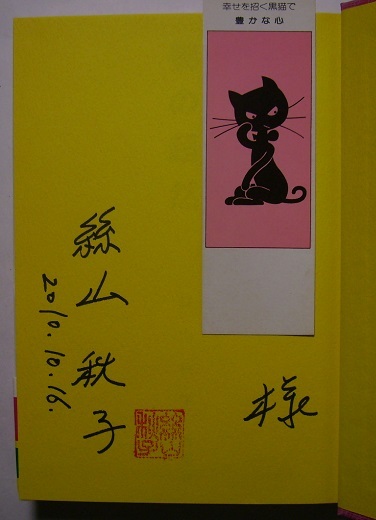 幸せを招く黒猫で
豊かな心
様
絲山秋子
2010.10.16.